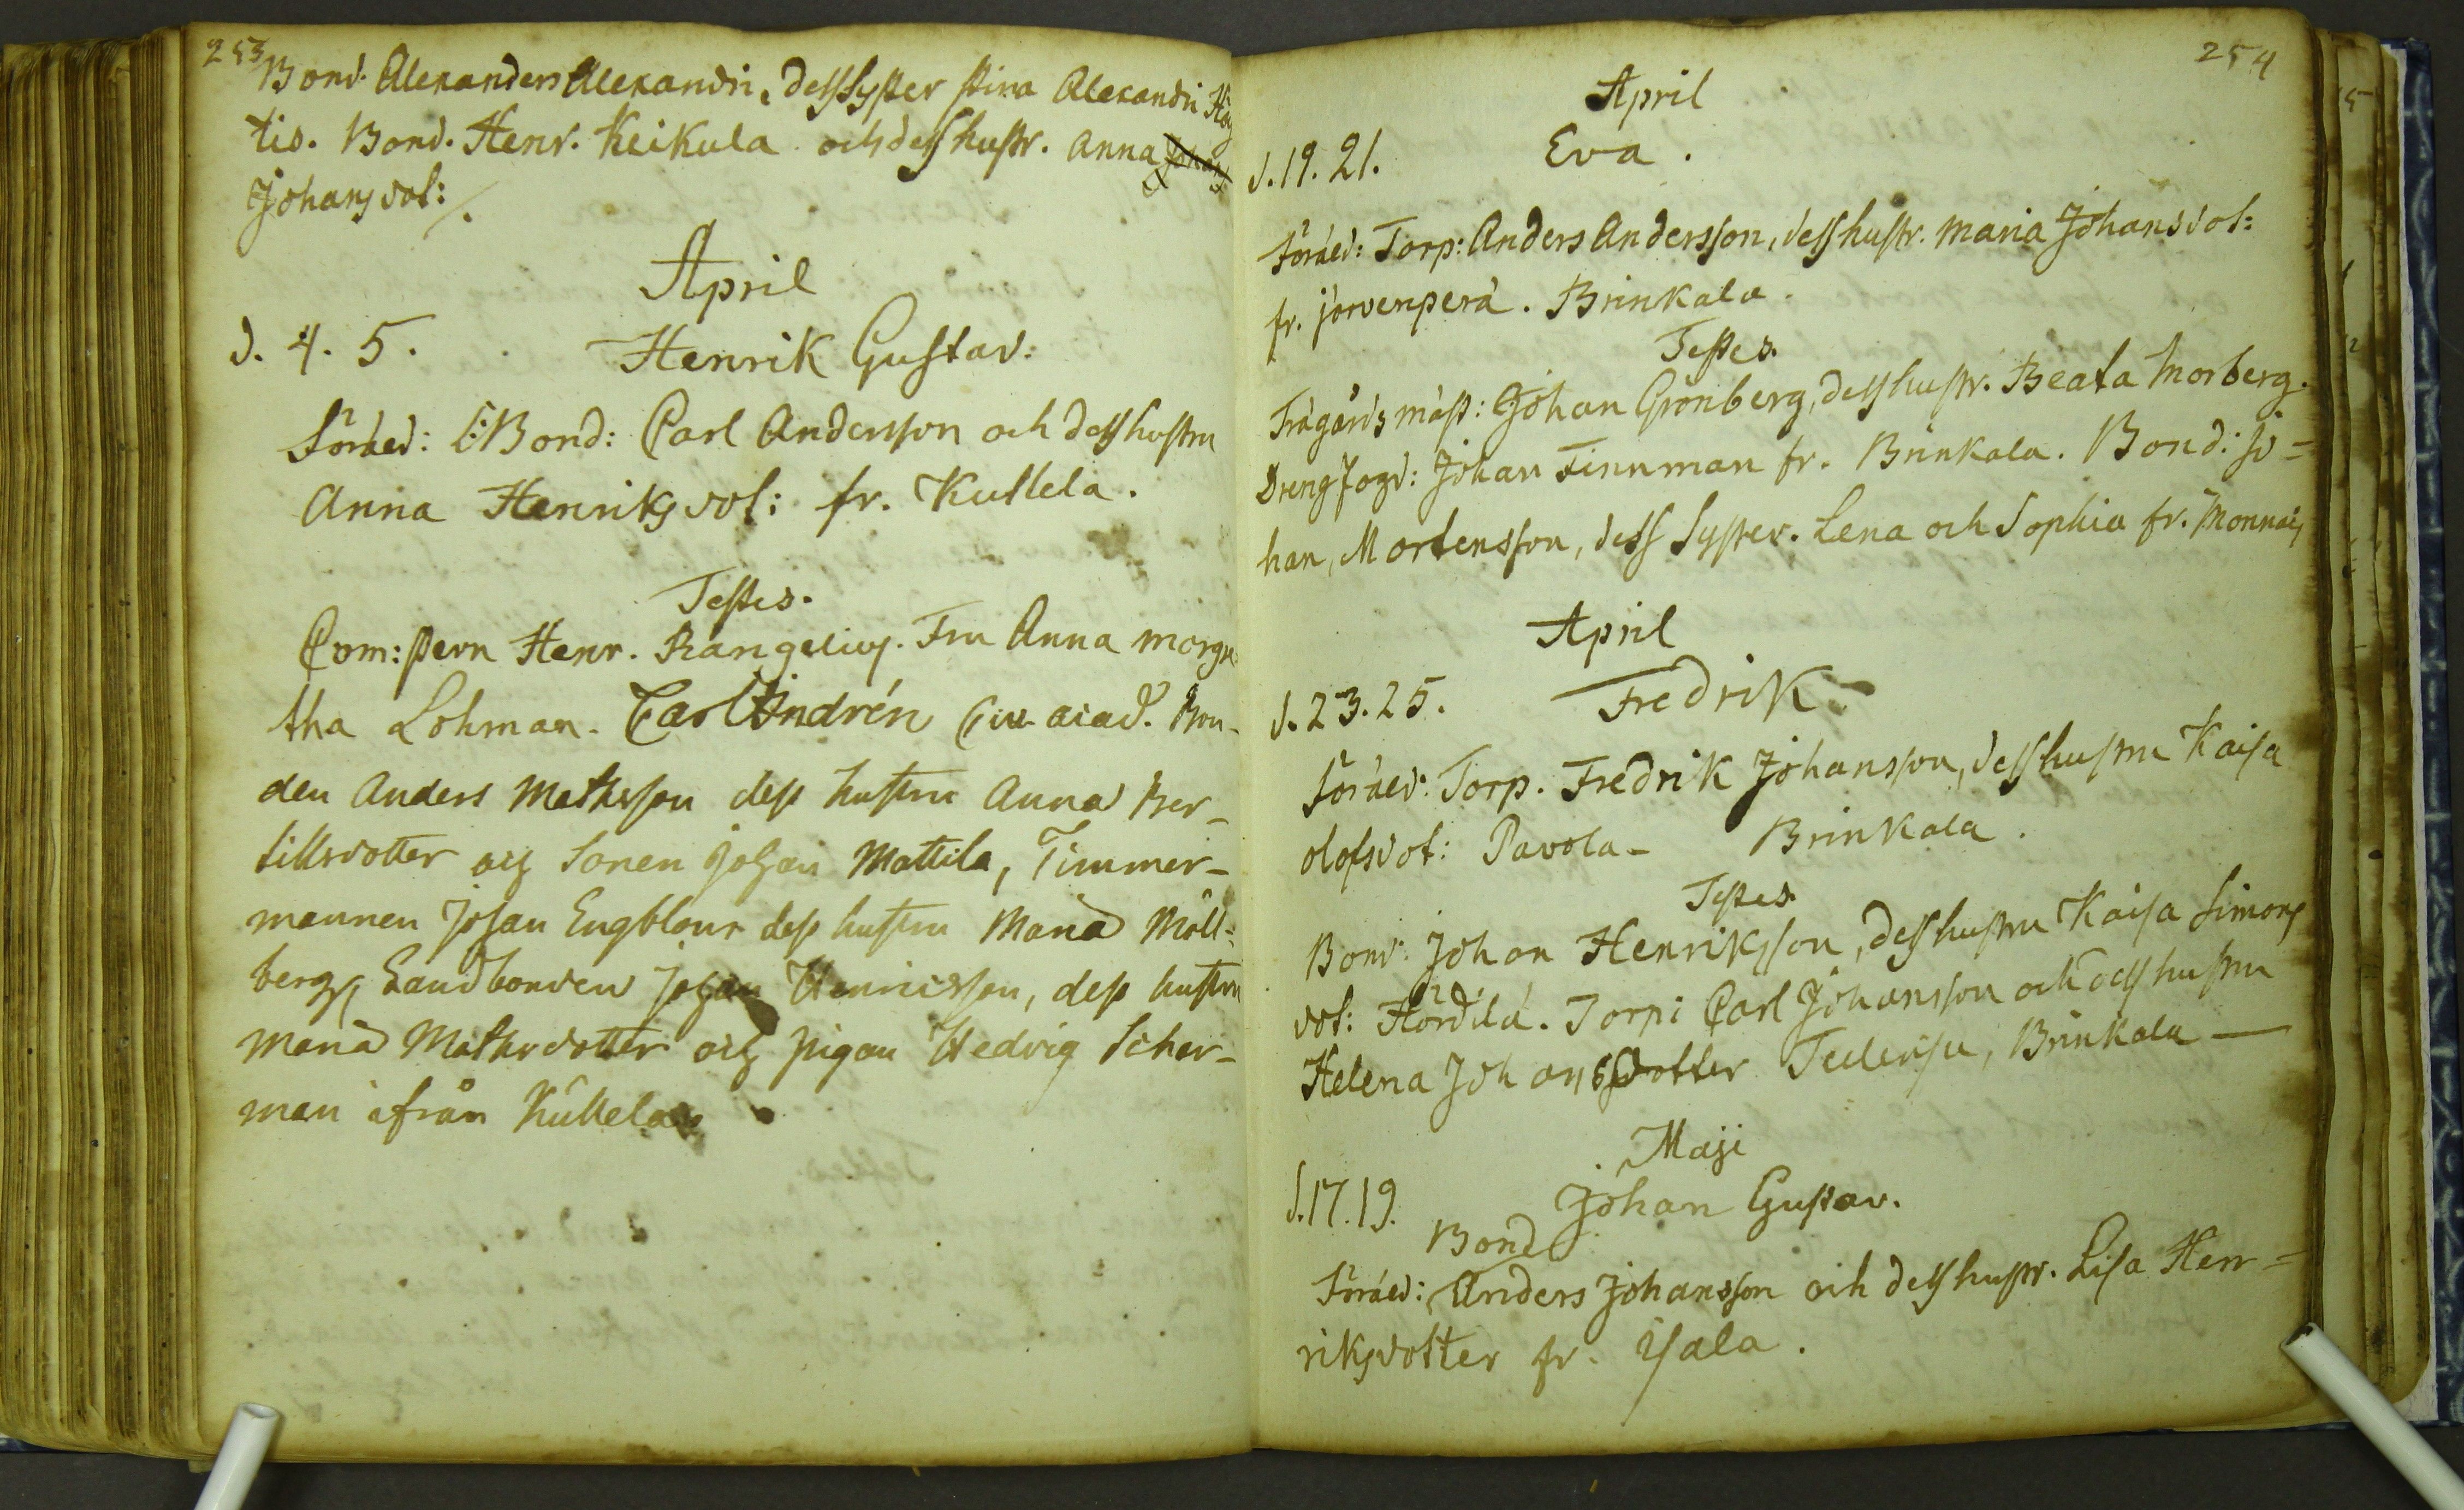 253
Bond. Alexanders Alexandri, dess Syster Stina Alexandri
tis. Bond. Henr. Keikula och dess hustr. Anna Johans
Johans dot:
April
d. 4. 5. Henrik Gustav:
Föräld: Bond: Carl Andersson och dess hustru
Anna Henriks dot: fr. Kullela.
Testes.
Com: Henr. Rangelius. Fru Anna Morga
tha Lohman. Carl Indrén Civ. acad. Bon-
den Anders Mathsson dess hustru Anna Ber-
tillsdotter och Sonen Johan Mattila, Timmer-
mannen Johan Engblom dess hustru Maria Möll-
berg, Landbonden Johan Henricsson, dess hustru
Maria Mathsdotter och pigan Hedvig Scher-
man ifrån Kullela
254
April
d. 19. 21. Eva.
Föräld: Torp: Anders Andersson, dess hustr. Maria Johansdot:
fr. Jervenperä. Brinkala.
Testes.
Trägårds mäst: Johan Grönberg, dess hustr. Beata Morberg.
Dreng fogd: Johan Finnman fr. Brinkala. Bond: Jo=
han, Mortensson, dess Syster. Lena och Sophia fr. Monnais
April
d. 23. 25. Fredrik
Föräld: Torp. Fredrik Johansson, dess hustru Kaisa
olofsdot: Pavola - Brinkala.
Testes.
Bond: Johan Henriksson, dess hustru Kaisa Simons
dot: Hördilä. Torp: Carl Johansson och dess hustru
Helena Johansdotter Brinkala —
Maji
d. 17. 19. Johan Gustav.
Bond
Föräld: Anders Johansson och dess hustr. Lisa Hen=
riksdotter fr. Yala.